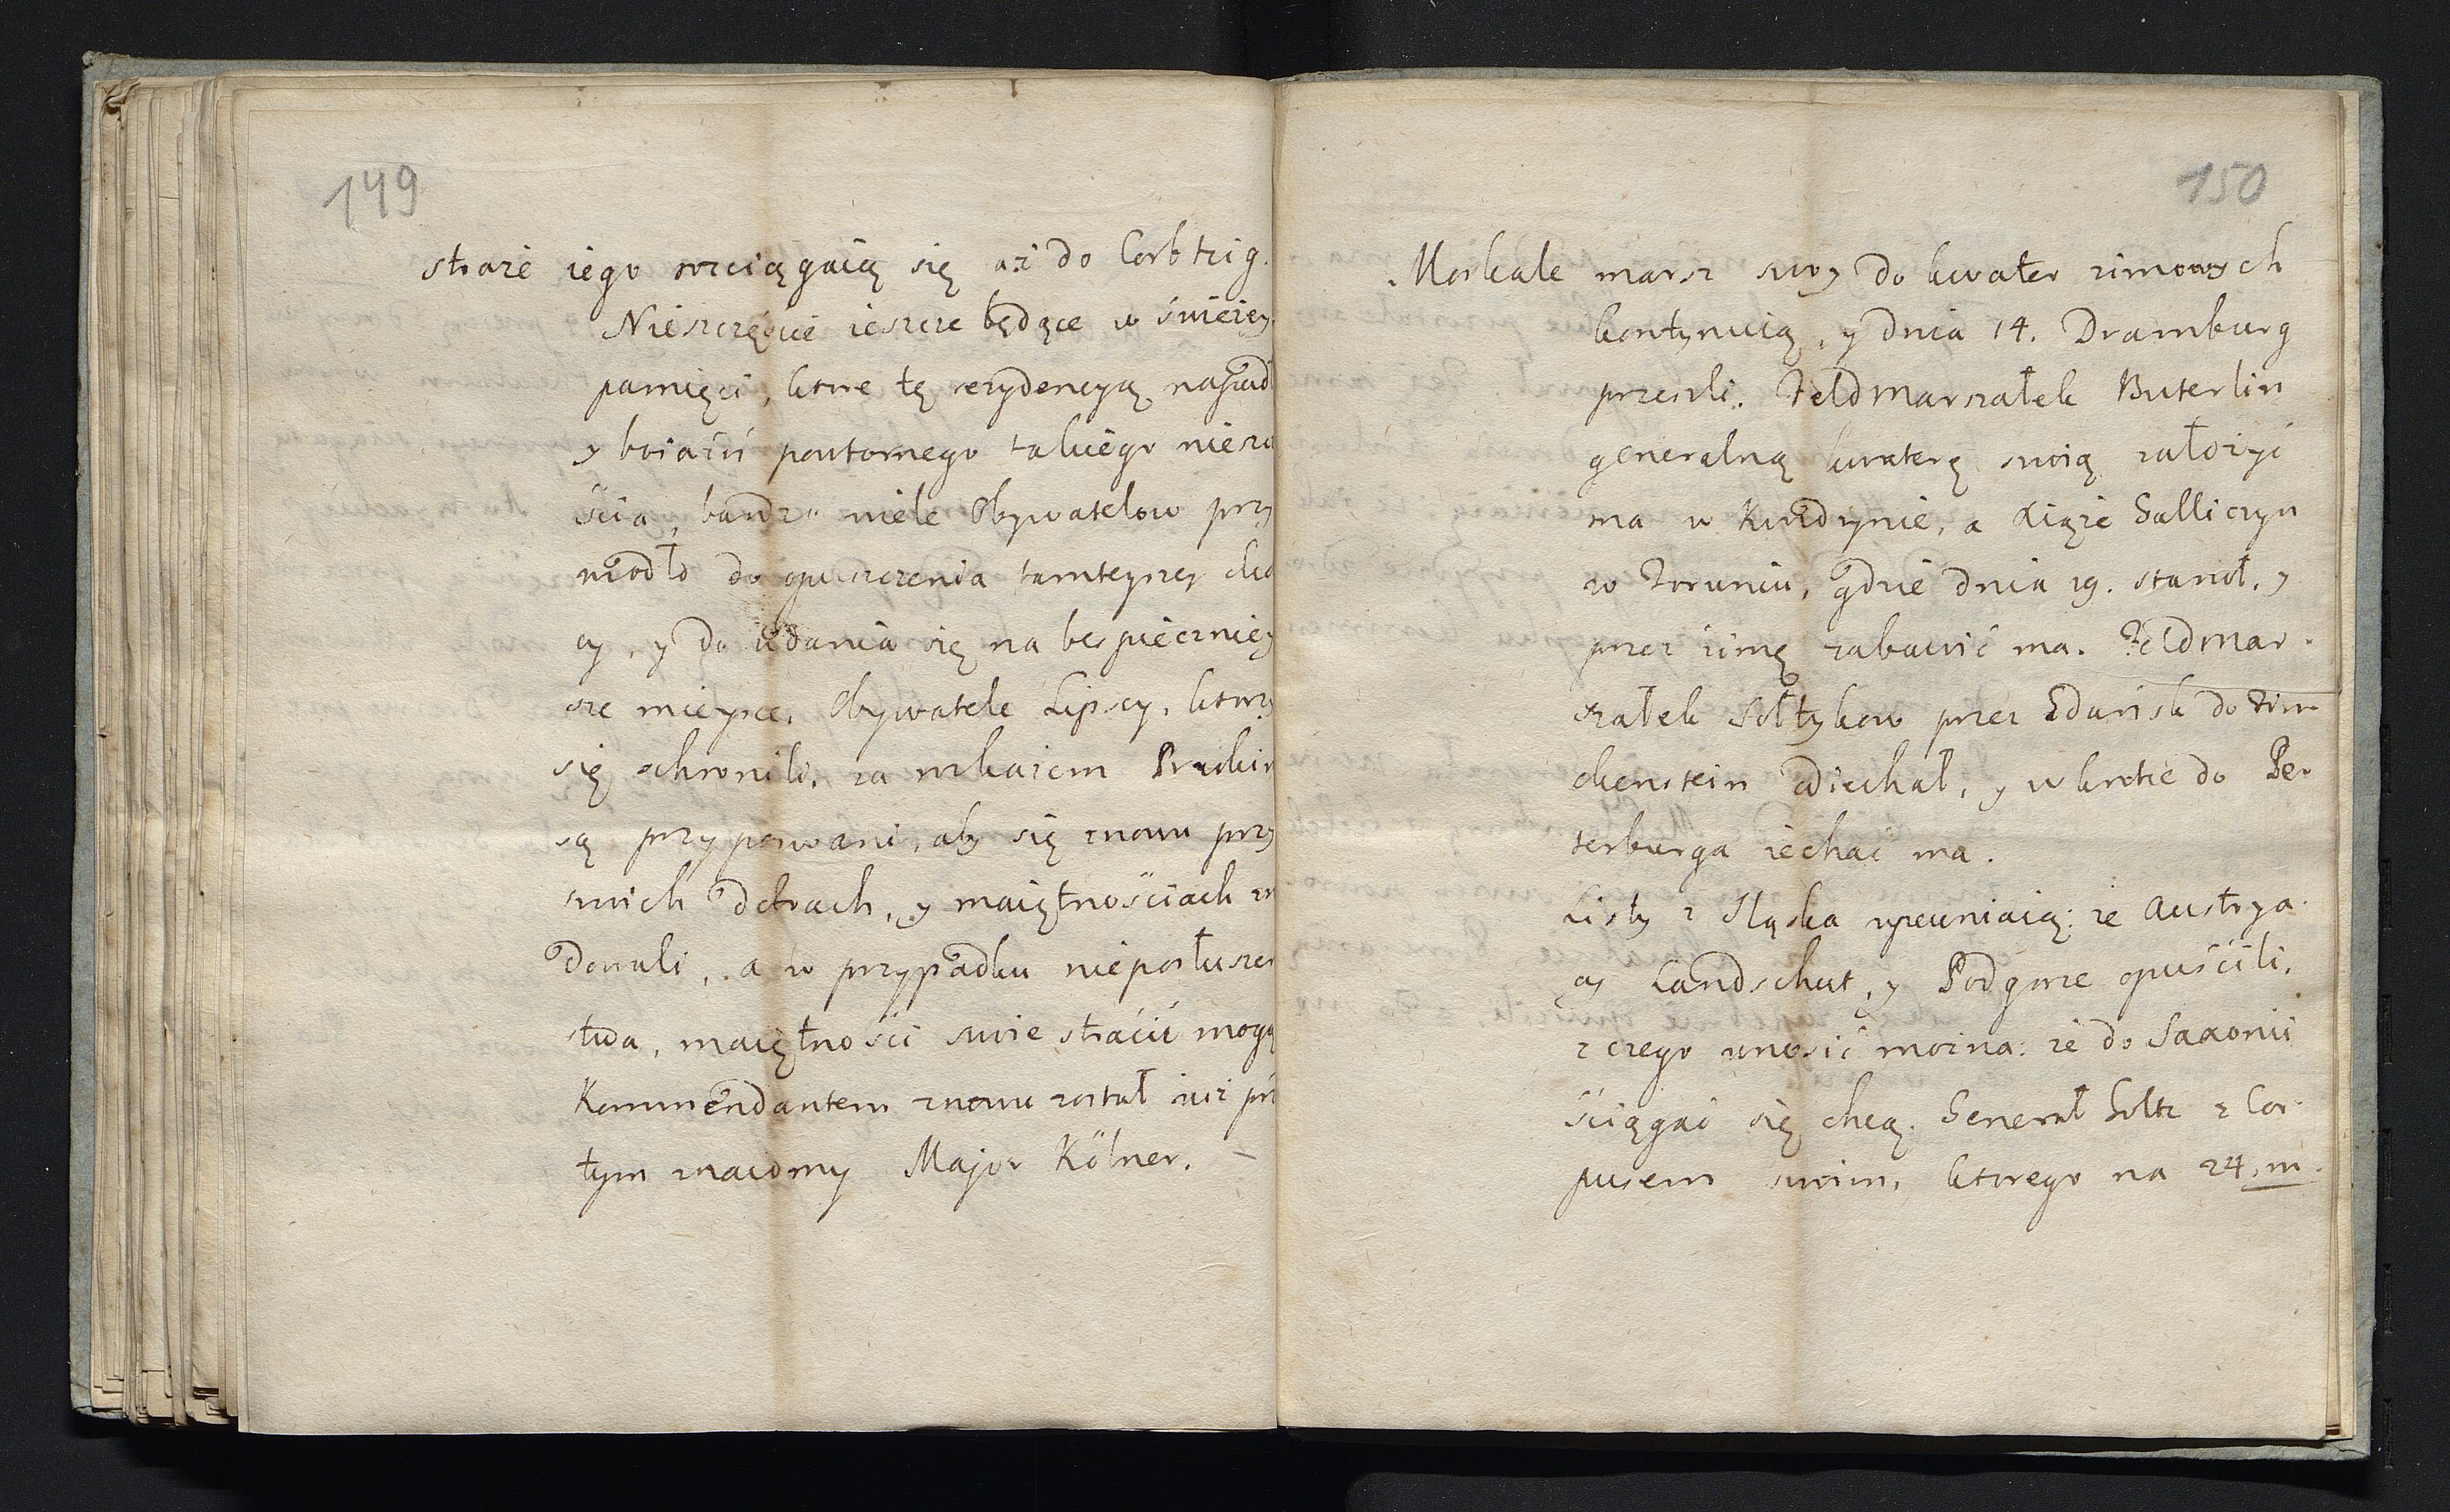 149
straże iego rozciągaią się aż do Corbtzig.
Nieszczęście ieszcze będące w świeżey
pamięci, ktore tę rezydencyą napad
y boiaźń powtornego takiego niesz
ścia, bardzo wiele Obywatelow przy
wiodło do opuszczenia tamteyszey
cy, y do udania się na bespieczniey
sze mieysce. Obywatele Lipscy, ktorzy
się schronili, za rozkazem Pruskim
są przypozwani, aby się znowu przy
swoich dobrach, y maiętnościach zn
dowali, a w przypadku nieposłuszeń
stwa, maiętności swoie stracić mogą
Kommendantem znowu został iuż prz
tym znaiomy Major Kölner. –
150
Moskale marsz swoy do kwater zimowych
kontynuią, y dnia 14. Dramburg
przeszli. Feldmarszałek Buterlin
generalną kwaterę swoią założyć
ma w Kwidzynie, a Xiąże Galliczyn
w Toruniu, gdzie dnia 19. stanoł, y
przez zimę zabawić ma. Feldmar-
szałek Sołtykow przez Gdańsk do
ckenstein odiechał, y w krotce do Pe-
terburga iechać ma.
Listy z Sląska upewniaią: że Austrya-
cy Landschut, y Podgorze opuścili,
z czego wnosić można: że do Saxonii
ściągać się chcą. Generał Goltz z Cor-
pusem swoim, ktorego na 24, m.